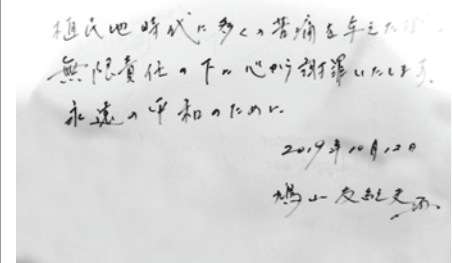 植民地時代に多くの苦痛を与えた
無限責任の下に心から謝罪いたします。
永遠の平和のために。
2019年10月12日
鳩山友紀夫